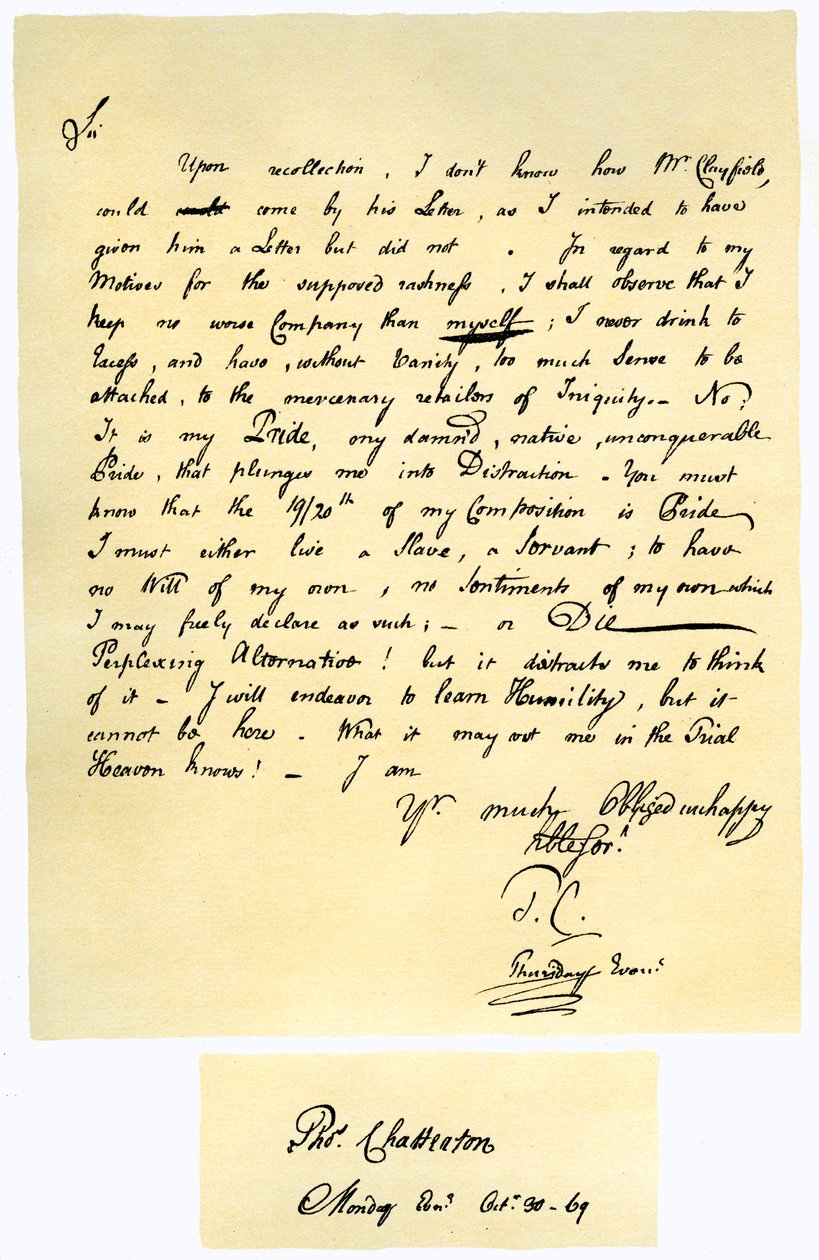 Sir
Upon recollection, I don't know how Mr. Clayfield,
could could come by his Letter, as I intended to have
given him a Letter but did not. In regard to my
Motives for the supposed rashness, I shall observe that I
keep no worse Company than myself; I never drink to
Excess, and have, without Vanity, too much Sense to be
attached, to the mercenary retailers of Iniquity.— No!
It is my Pride, my damn'd, native, unconquerable
Pride, that plunges me into Distraction. You must
know that the 19/20th of my Composition is Pride
I must either live a Slave, a Servant; to have
no Will of my own, no Sentiments of my own which
I may freely declare as such;— or Die
Perplexing Alternative! but it distracts me to think
of it — I will endeavor to learn Humility, but it
cannot be here. What it may cost me in the Trial
Heaven knows! — I am
Yr. much Obliged unhappy
Hble Ser.t
T. C.
Thursday Even.g
Thos. Chatterton
Monday Evn.g Oct.r 30 - 69